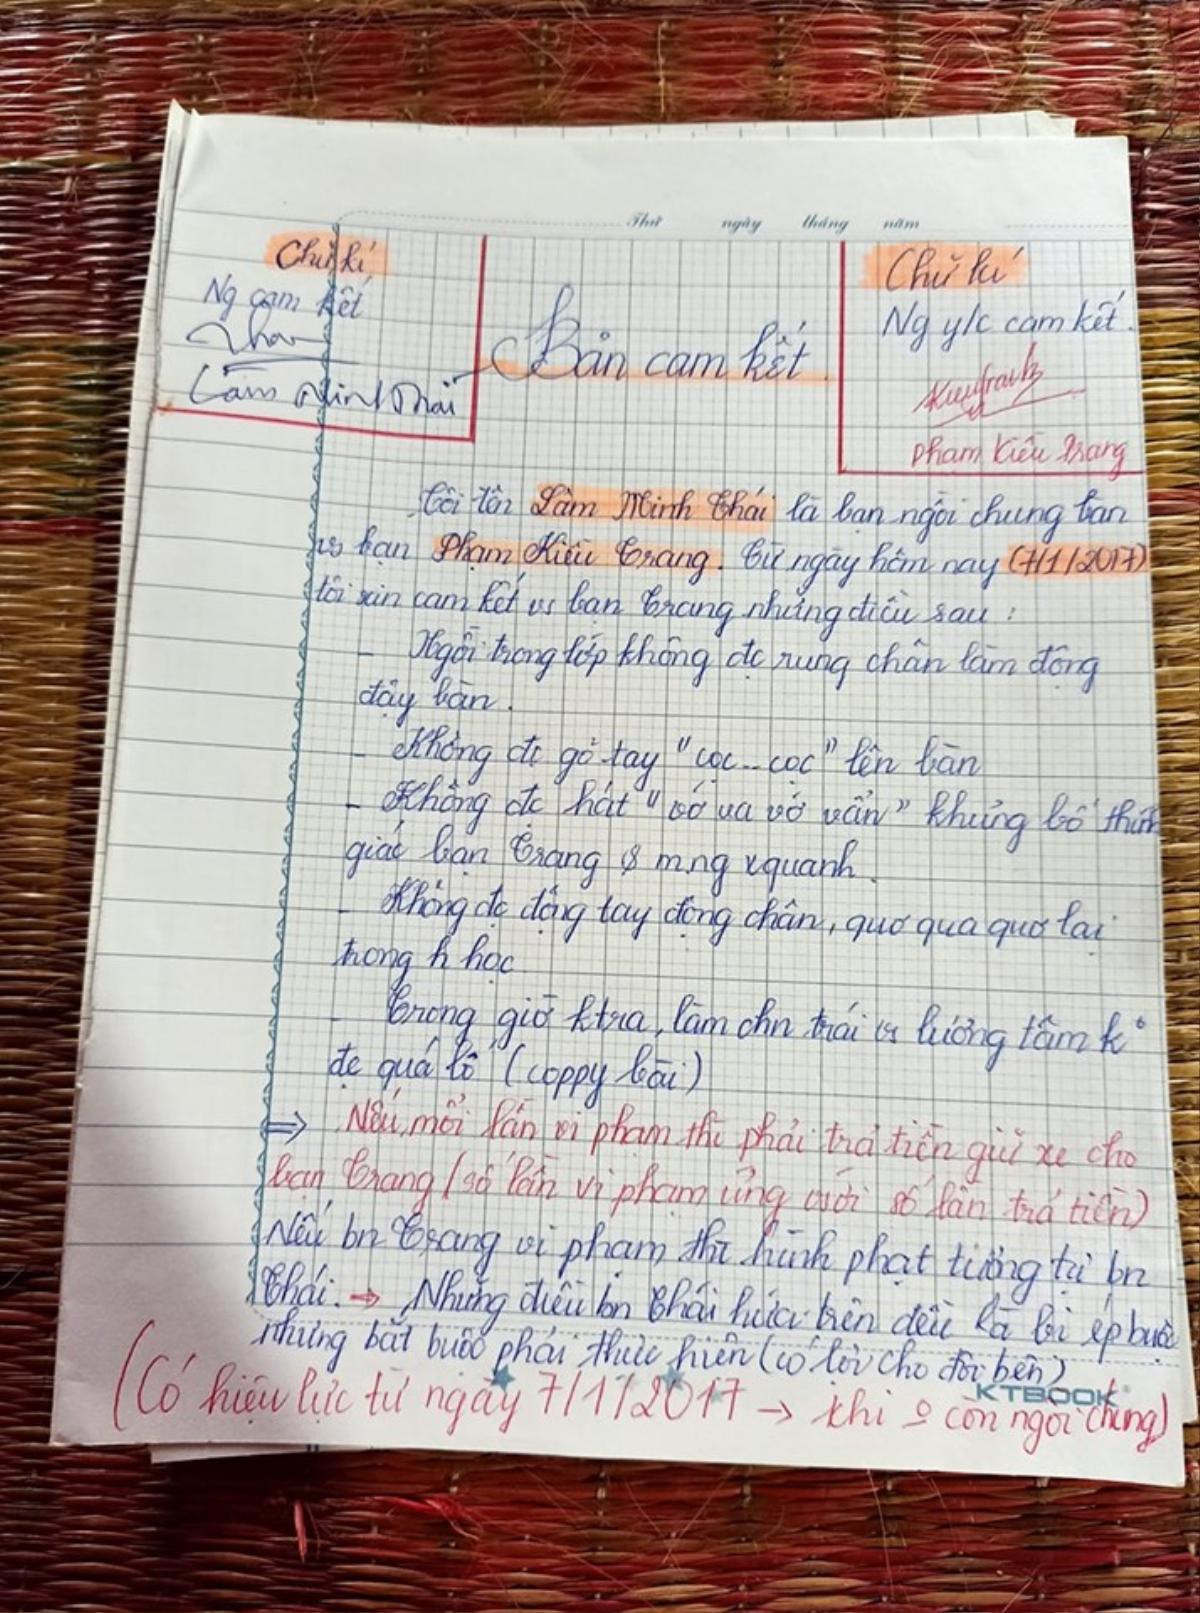 Thứ ngày tháng năm
Chữ kí
Ng cam kết
Lâm Minh Thái
Bản cam kết
Chữ kí
Ng y/c cam kết.
Phạm Kiều Trang
Tôi tên Lâm Minh Thái là bạn ngồi chung bàn
vs bạn Phạm Kiều Trang. Từ ngày hôm nay (7/1/2017)
tôi xin cam kết vs bạn Trang những điều sau:
- Ngồi trong lớp không đc rung chân làm động
đậy bàn.
- Không đc gõ tay "cọc - cọc" lên bàn
- Không đc hát "vớ va vớ vẩn" khủng bố thính
giác bạn Trang & m.ng xquanh.
- Không đc động tay động chân, quơ qua quơ lại
trong h học
- Trong giờ ktra, làm chn trái vs lương tâm k°
đc quá lố (coppy bài)
⇒ Nếu mỗi lần vi phạm thì phải trả tiền giữ xe cho
bạn Trang (số lần vi phạm ứng với số lần trả tiền)
Nếu bn Trang vi phạm thì hình phạt tương tự bn
Thái. → Những điều bn Thái hứa trên đều là bị ép buộc
nhưng bắt buộc phải thực hiện (có lợi cho đôi bên)
KTBOOK
(Có hiệu lực từ ngày 7/1/2017 → khi o còn ngồi chung)